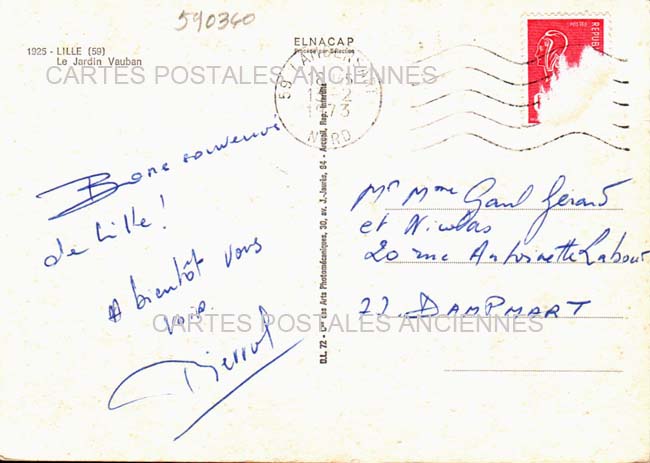 590360
1925 - LILLE (59)
Le Jardin Vauban
ELNACAP
Procédé par Sélection
CARTES POSTALES ANCIENNES
59 LAMBERSART
NORD
REPUB
Bons souvenirs
de Lille !
A bientôt vous
voir.
Pierrot
D.L. 72 - des Arts Photomécaniques, 30, av. J.-Jaurès, 94 - Arcueil, Rep. Interdite
Mr Mme Gaul Gerard
et Nicolas
20 rue Antoinette Labour
77. DAMPMART
CARTES POSTALES ANCIENNES